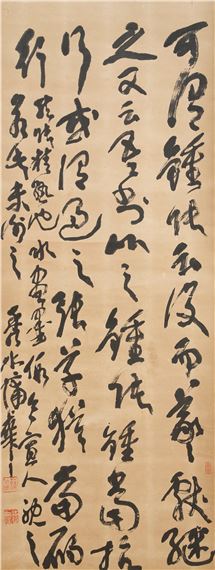 可謂鍾張云沒而羲獻繼
之又云吾書比之鍾張鍾當抗
行或謂過之張草猶當雁
行然張精熟池水盡墨假令寡人耽之
若此未必謝之 秀水蒲華